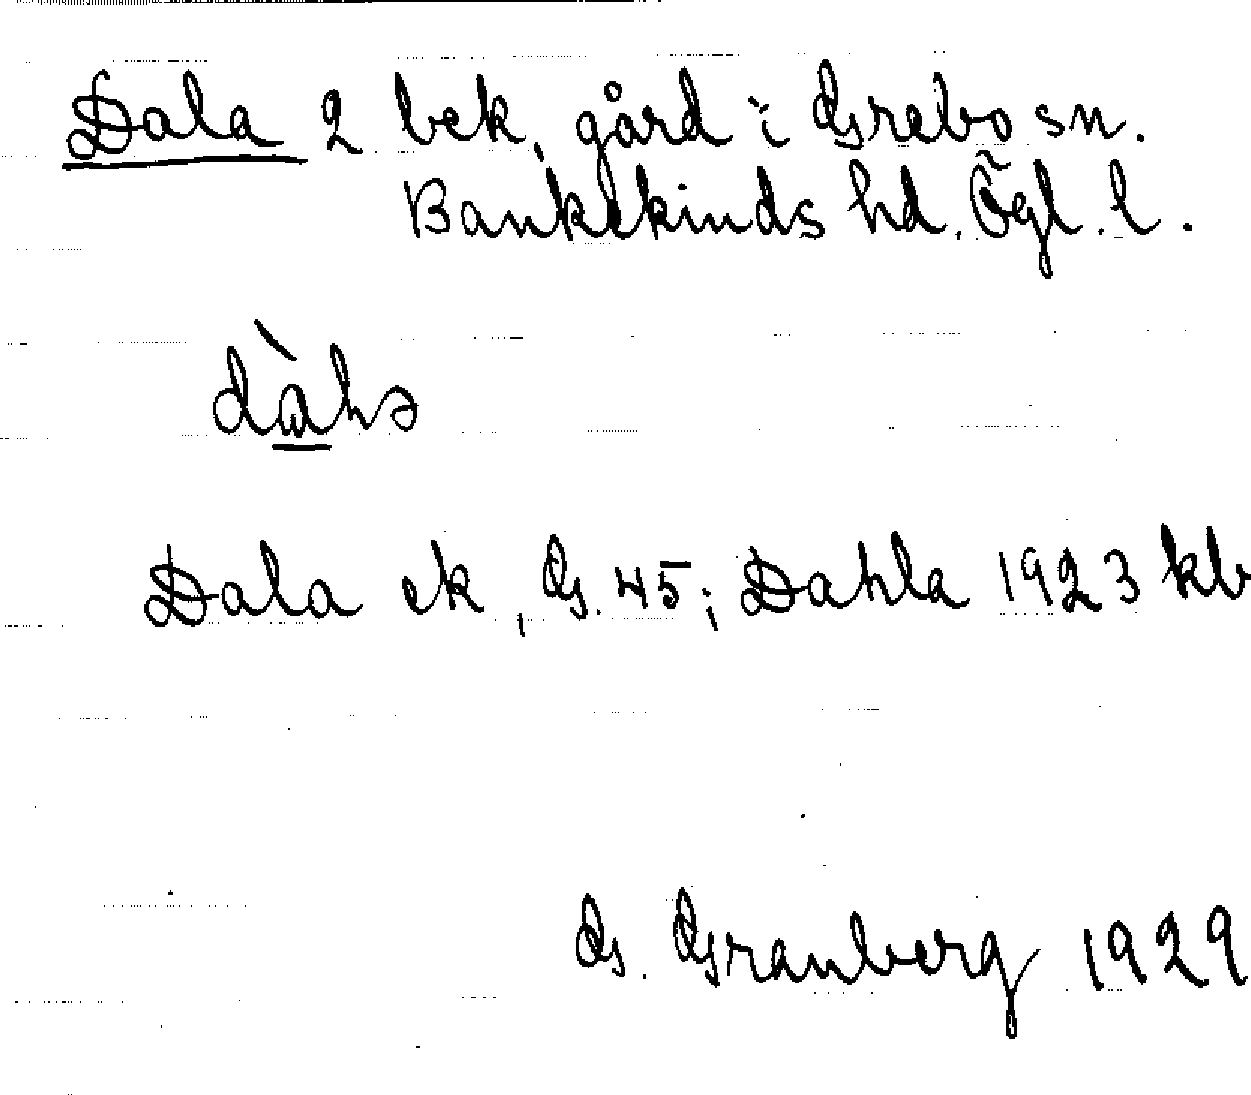 Dala 2 bek, gård i Grebo sn.
Bankekinds hd, Ögl. l.
dàla
Dala ek, G. 45; Dahla 1923 kb
G. Granberg 1929